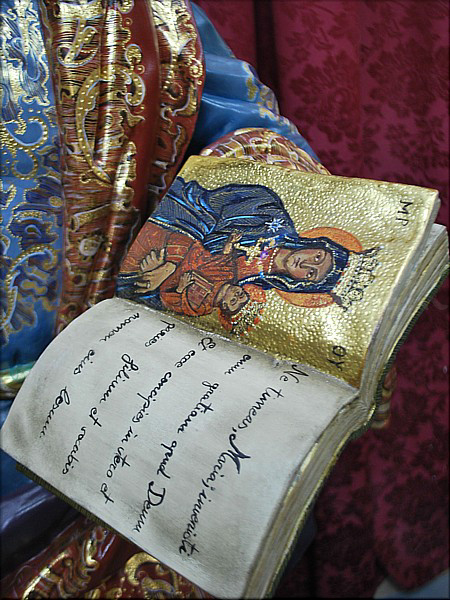 ΜΡ
ΘΥ
Ne timeas, Maria, invenisti
enim gratiam apud Deum
Et ecce concipies in utero et
paries filium et vocabis
nomen eius